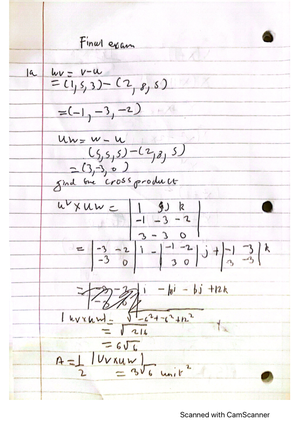 Final exam
1a uv = v-u
= (1, 5, 3) - (2, 8, 5)
= (-1, -3, -2)
uw = w - u
(5, 5, 5) - (2, 8, 5)
= (3, -3, 0)
find the cross product
uv × uw = | i j k |
| -1 -3 -2 |
| 3 -3 0 |
= | -3 -2 | i - | -1 -2 | j + | -1 -3 | k
| -3 0 | | 3 0 | | 3 -3 |
= i - 6i - 6j + 12k
|uv×uw| = √-6²+-6²+12²
= √216
= 6√6
A = 1/2 |uv×uw|
= 3√6 unit²
Scanned with CamScanner